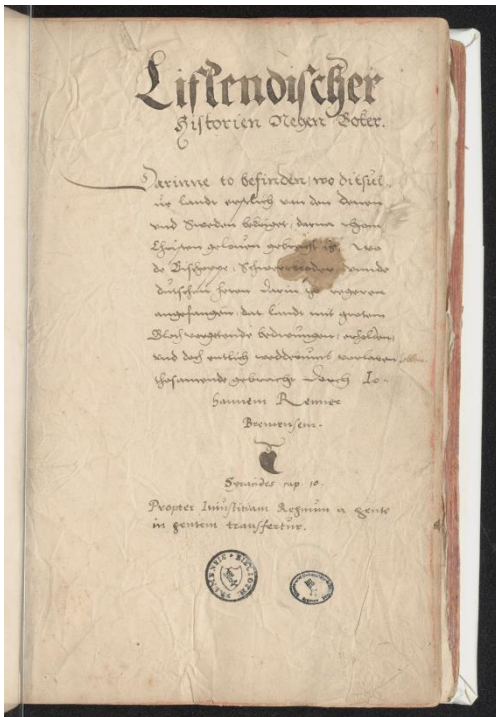 Liflendischer
Historien Negen Boker.
Darinne to befinden, wo ditsul-
ue landt erstlich van den Denen
vnd Sweden bekriget, darna thom
Christen gelouen gebracht is, wo
de Bischoppe, Schwertbroder vnnde
dutschen heren darin to regeren
angefangen, dat landt mit grotem
Blodt vorgetende bedwungen, erholden,
vnd doch entlich wedderumb vorlaren
thosamende gebracht dorch Jo-
hannem Renner
Bremensem.
Syracides cap 10.
Propter Iniustitiam Regnum a gente
in gentem transfertur.
BIBLIOTH. BREMENSIS